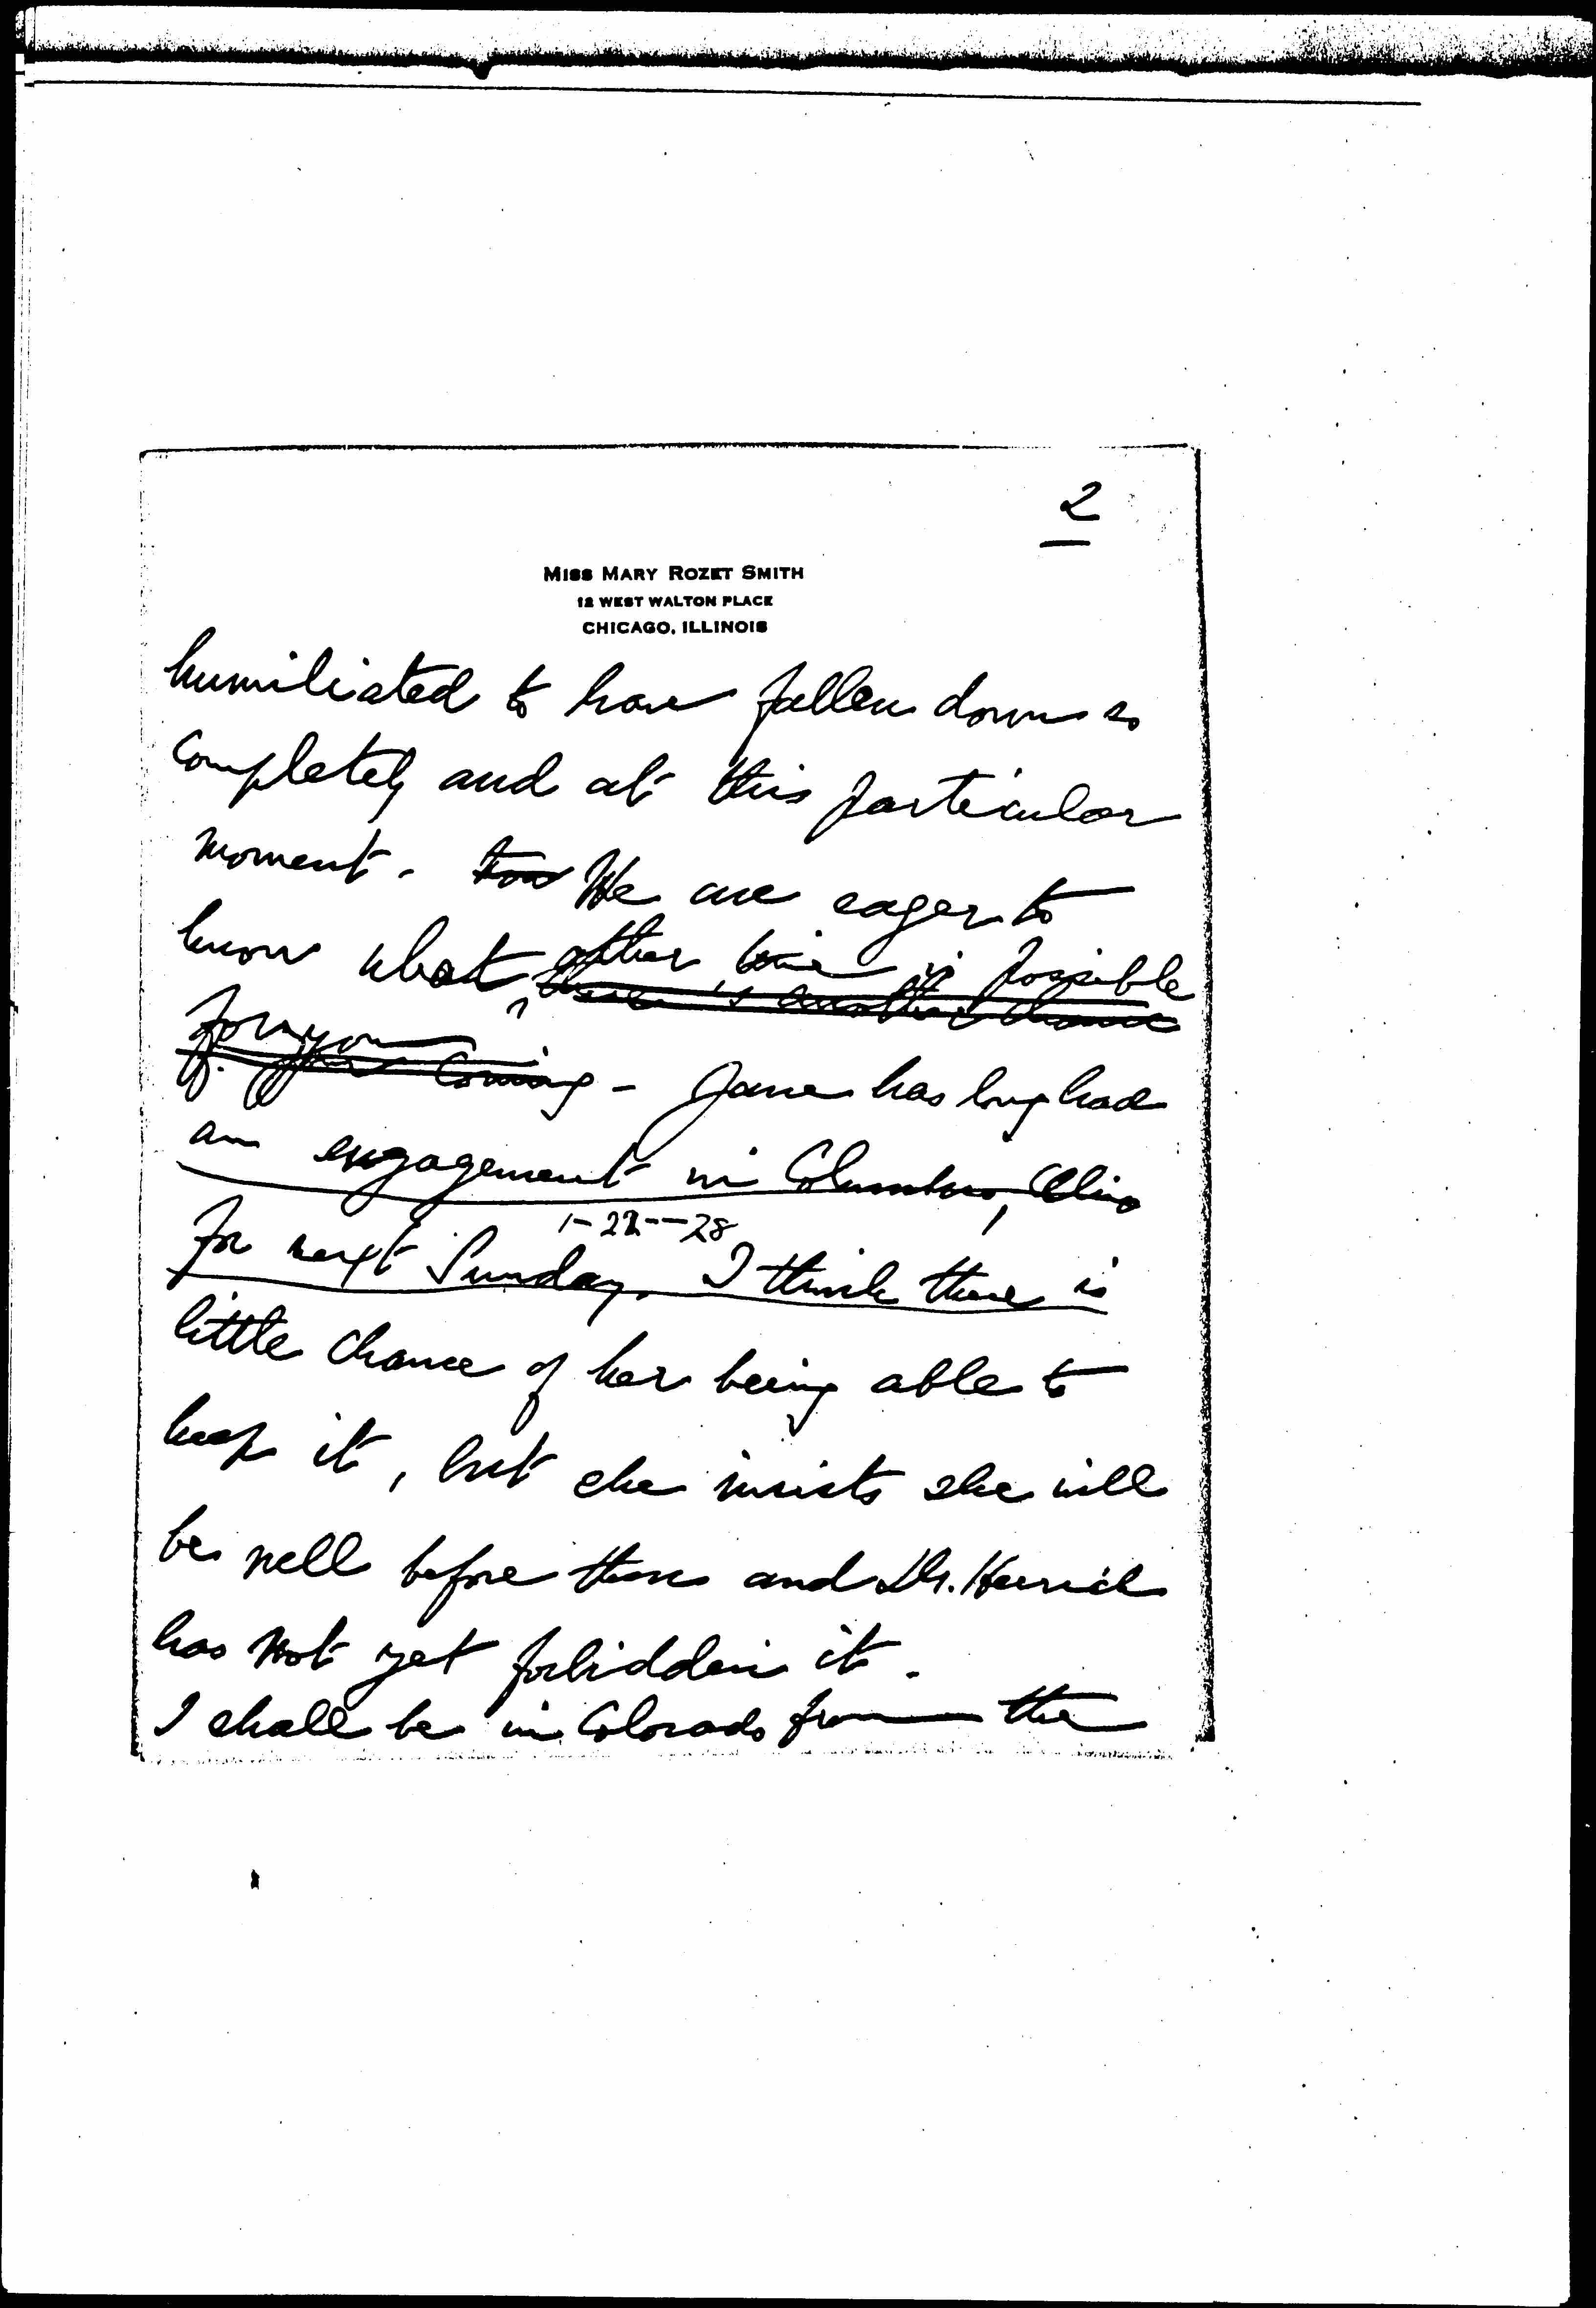 2
MISS MARY ROZET SMITH
12 WEST WALTON PLACE
CHICAGO, ILLINOIS
humiliated to have fallen down so
completely and at this particular
moment. We are eager to
know what other time is possible
there is another chance
for you
of your coming - Jane has long had
an engagement in Columbus, Ohio
1-22--28
for next Sunday. I think there is
little chance of her being able to
keep it, but she insists she will
be well before then and Dr. Herrick
has not yet forbidden it.
I shall be in Colorado from the